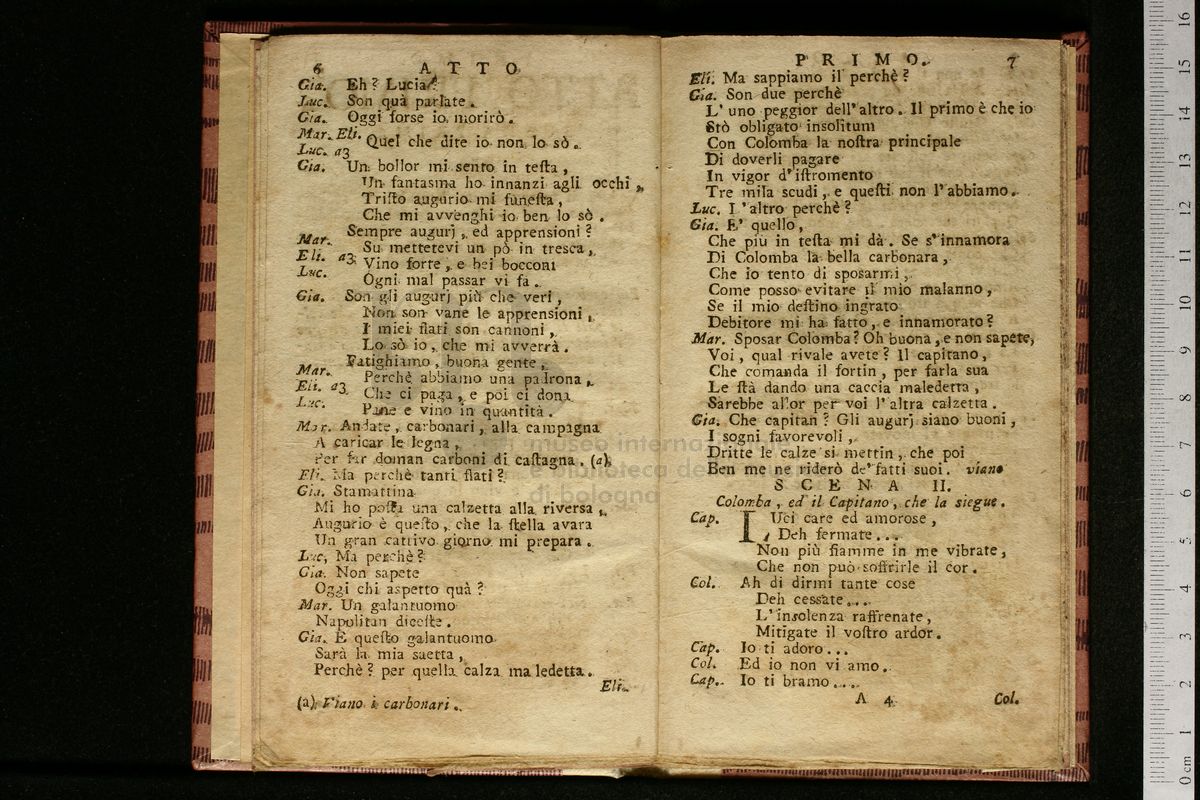 6 ATTO
Gia. Eh? Lucia?
Luc. Son quà parlate.
Gia. Oggi forse io morirò.
Mar. Eli. Luc. a3 Quel che dite io non lo sò.
Gia. Un bollor mi sento in testa,
Un fantasma ho innanzi agli occhi,
Tristo augurio mi funesta,
Che mi avvenghi io ben lo sò.
Sempre augurj, ed apprensioni?
Mar. Su mettetevi un pò in tresca,
Eli. a3 Vino forte, e bei bocconi
Luc. Ogni mal passar vi fa.
Gia. Son gli augurj più che veri,
Non son vane le apprensioni,
I miei flati son cannoni,
Lo sò io, che mi avverrà.
Fatighiamo, buona gente,
Mar. Perchè abbiamo una padrona,
Eli. a3 Che ci paga, e poi ci dona
Luc. Pane e vino in quantità.
Mar. Andate, carbonari, alla campagna
A caricar le legna,
Per far doman carboni di castagna. (a)
Eli. Ma perchè tanti flati?
Gia. Stamattina
Mi ho posta una calzetta alla riversa,
Augurio è questo, che la stella avara
Un gran cattivo giorno mi prepara.
Luc. Ma perchè?
Gia. Non sapete
Oggi chi aspetto quà?
Mar. Un galantuomo
Napolitan diceste.
Gia. E questo galantuomo
Sarà la mia saetta,
Perchè? per quella calza maledetta.
Eli.
(a) Viano i carbonari.
PRIMO. 7
Eli. Ma sappiamo il perchè?
Gia. Son due perchè
L'uno peggior dell'altro. Il primo è che io
Stò obligato insolitum
Con Colomba la nostra principale
Di doverli pagare
In vigor d'istromento
Tre mila scudi, e questi non l'abbiamo.
Luc. L'altro perchè?
Gia. E' quello,
Che più in testa mi dà. Se s'innamora
Di Colomba la bella carbonara,
Che io tento di sposarmi,
Come posso evitare il mio malanno,
Se il mio destino ingrato
Debitore mi ha fatto, e innamorato?
Mar. Sposar Colomba? Oh buona, e non sapete,
Voi, qual rivale avete? Il capitano,
Che comanda il fortin, per farla sua
Le stà dando una caccia maledetta,
Sarebbe allor per voi l'altra calzetta.
Gia. Che capitan? Gli augurj siano buoni,
I sogni favorevoli,
Dritte le calze si mettin, che poi
Ben me ne riderò de' fatti suoi. viano
SCENA II.
Colomba, ed il Capitano, che la siegue.
Cap. LUci care ed amorose,
Deh fermate...
Non più fiamme in me vibrate,
Che non può soffrirle il cor.
Col. Ah di dirmi tante cose
Deh cessate...
L'insolenza raffrenate,
Mitigate il vostro ardor.
Cap. Io ti adoro...
Col. Ed io non vi amo.
Cap. Io ti bramo....
A 4 Col.
museo internazionale
e biblioteca della
di bologna
0 cm 1 2 3 4 5 6 7 8 9 10 11 12 13 14 15 16